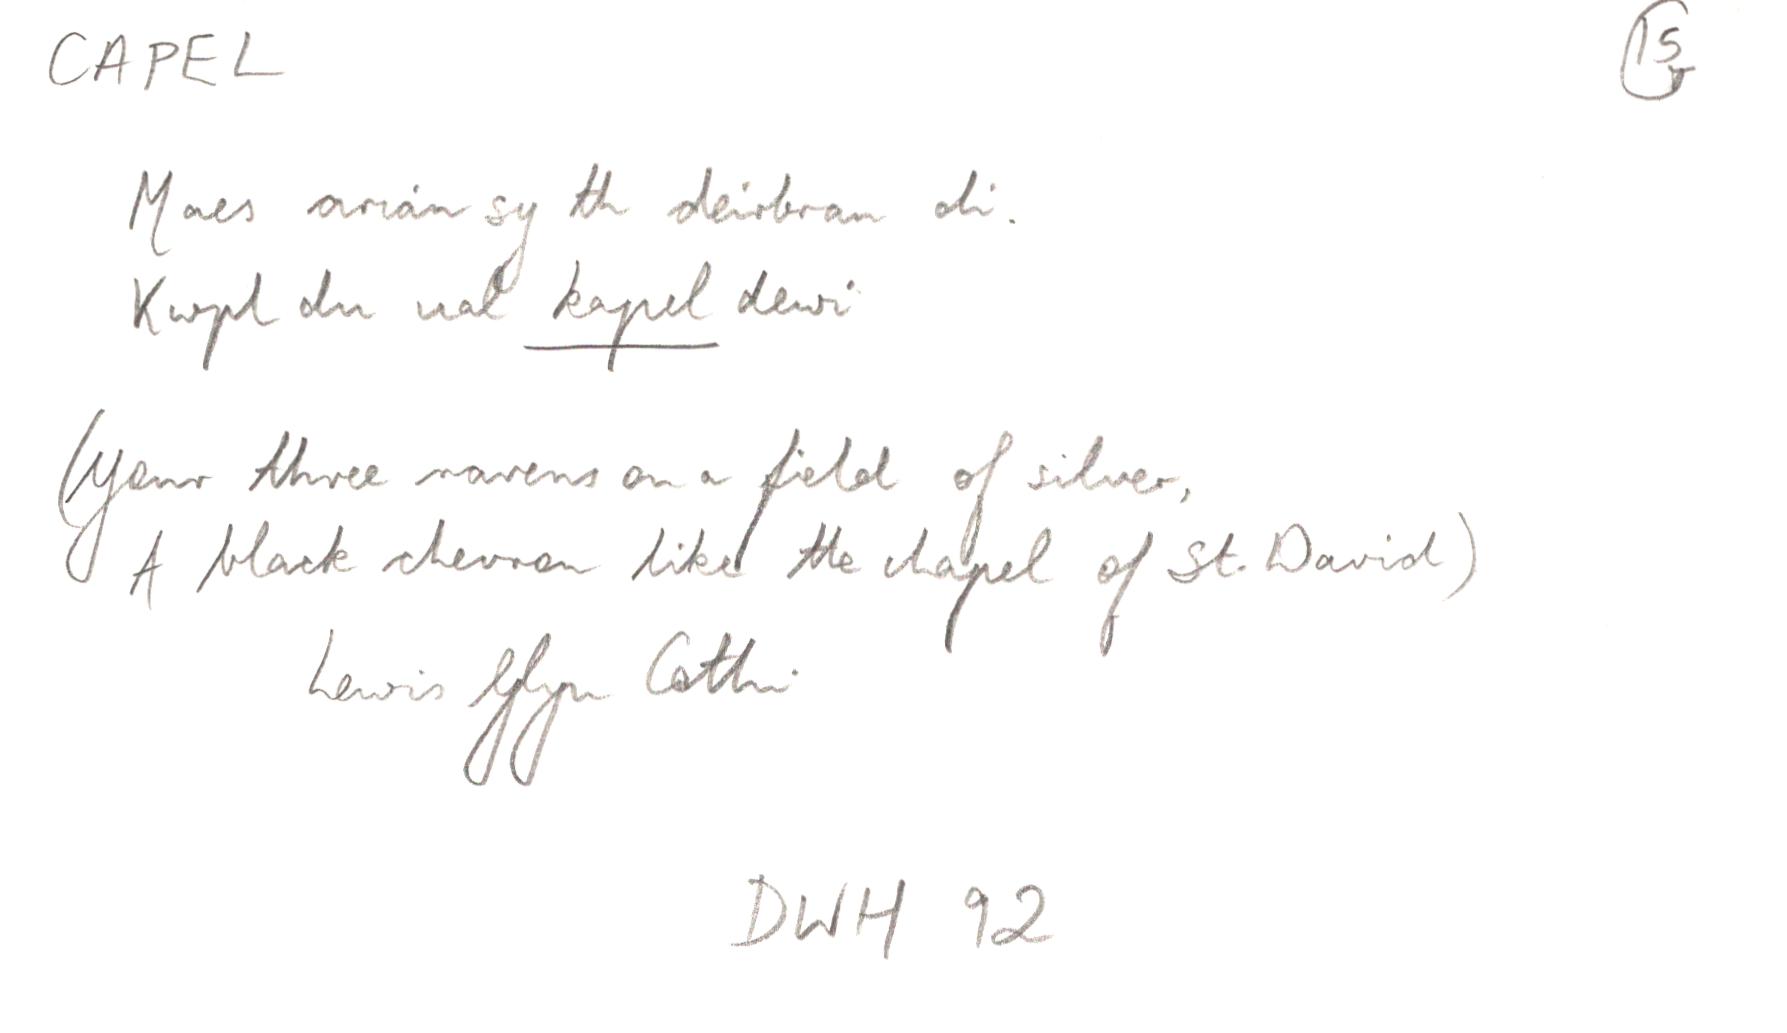 CAPEL 15
Maes arian sy th deirbran di.
Kwpl du ual kapel dewi
(your three ravens on a field of silver,
A black chevron like the chapel of St. David)
Lewis Glyn Cothi
DWH 92